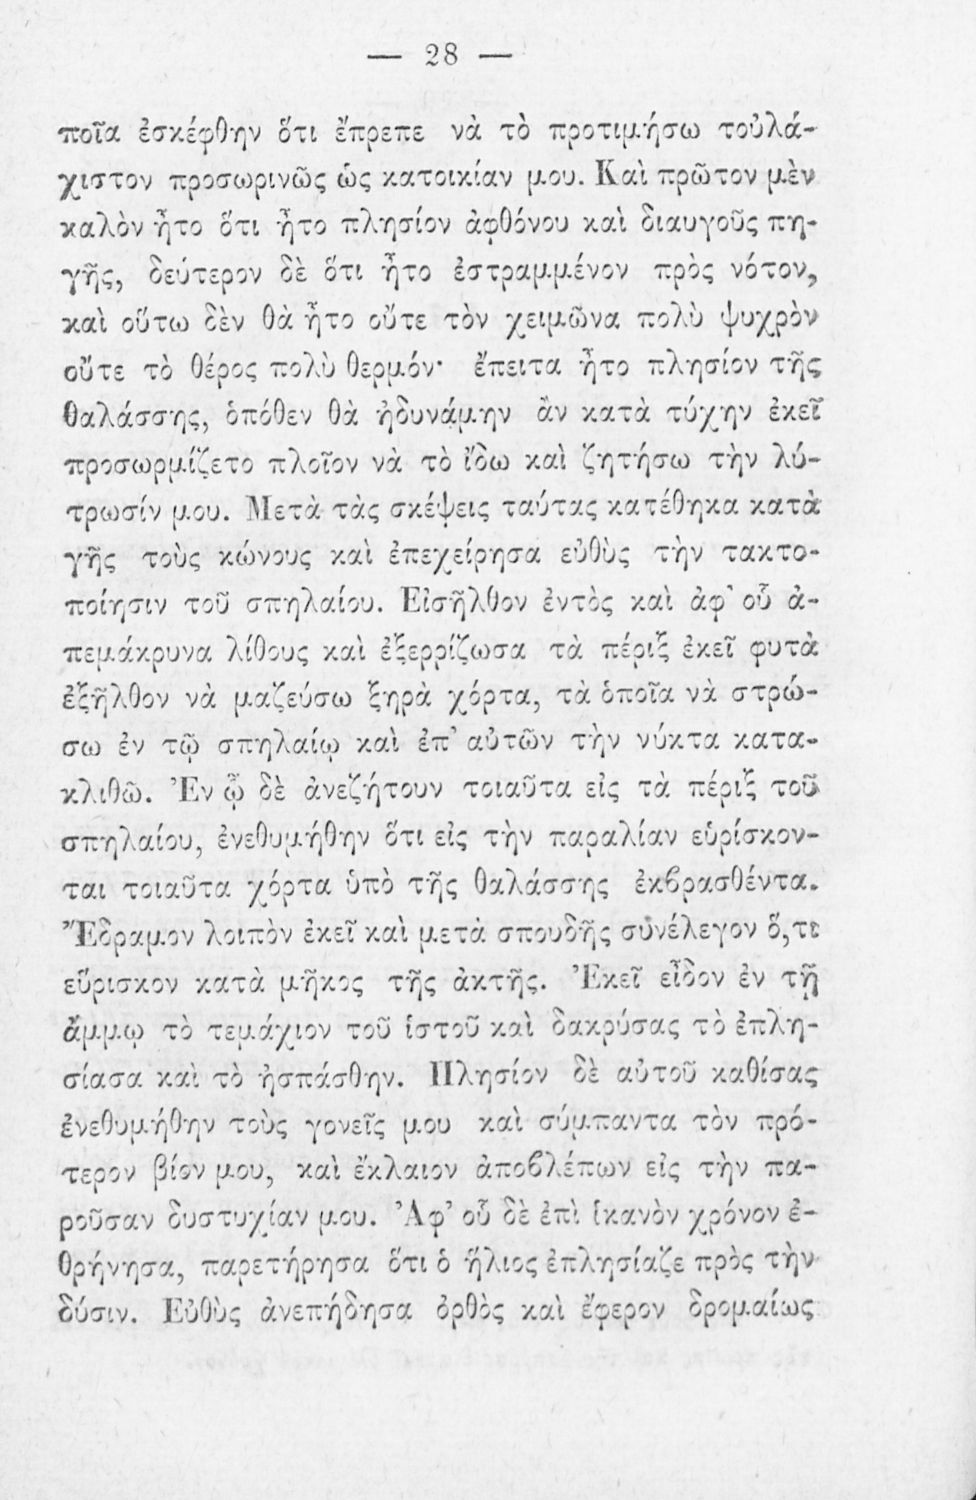 — 28 —
ποῖα ἐσκέφθην ὅτι ἔπρεπε νὰ τὸ προτιμήσω τοὐλά-
χιστον προσωρινῶς ὡς κατοικίαν μου. Καὶ πρῶτον μὲν
καλὸν ἦτο ὅτι ἦτο πλησίον ἀφθόνου καὶ διαυγοῦς πη-
γῆς, δεύτερον δὲ ὅτι ἦτο ἐστραμμένον πρὸς νότον,
καὶ οὕτω δὲν θὰ ἦτο οὔτε τὸν χειμῶνα πολὺ ψυχρὸν
οὔτε τὸ θέρος πολὺ θερμόν· ἔπειτα ἦτο πλησίον τῆς
θαλάσσης, ὁπόθεν θὰ ἠδυνάμην ἂν κατὰ τύχην ἐκεῖ
προσωρμίζετο πλοῖον νὰ τὸ ἴδω καὶ ζητήσω τὴν λύ-
τρωσίν μου. Μετὰ τὰς σκέψεις ταύτας κατέθηκα κατὰ
γῆς τοὺς κώνους καὶ ἐπεχείρησα εὐθὺς τὴν τακτο-
ποίησιν τοῦ σπηλαίου. Εἰσῆλθον ἐντὸς καὶ ἀφ' οὗ ἀ-
πεμάκρυνα λίθους καὶ ἐξερρίζωσα τὰ πέριξ ἐκεῖ φυτὰ
ἐξῆλθον νὰ μαζεύσω ξηρὰ χόρτα, τὰ ὁποῖα νὰ στρώ-
σω ἐν τῷ σπηλαίῳ καὶ ἐπ' αὐτῶν τὴν νύκτα κατα-
κλιθῶ. Ἐν ᾧ δὲ ἀνεζήτουν τοιαῦτα εἰς τὰ πέριξ τοῦ
σπηλαίου, ἐνεθυμήθην ὅτι εἰς τὴν παραλίαν εὑρίσκον-
ται τοιαῦτα χόρτα ὑπὸ τῆς θαλάσσης ἐκβρασθέντα.
Ἔδραμον λοιπὸν ἐκεῖ καὶ μετὰ σπουδῆς συνέλεγον ὅ,τι
εὕρισκον κατὰ μῆκος τῆς ἀκτῆς. Ἐκεῖ εἶδον ἐν τῇ
ἄμμῳ τὸ τεμάχιον τοῦ ἱστοῦ καὶ δακρύσας τὸ ἐπλη-
σίασα καὶ τὸ ἠσπάσθην. Πλησίον δὲ αὐτοῦ καθίσας
ἐνεθυμήθην τοὺς γονεῖς μου καὶ σύμπαντα τὸν πρό-
τερον βίον μου, καὶ ἔκλαιον ἀποβλέπων εἰς τὴν πα-
ροῦσαν δυστυχίαν μου. Ἀφ' οὗ δὲ ἐπὶ ἱκανὸν χρόνον ἐ-
θρήνησα, παρετήρησα ὅτι ὁ ἥλιος ἐπλησίαζε πρὸς τὴν
δύσιν. Εὐθὺς ἀνεπήδησα ὀρθὸς καὶ ἔφερον δρομαίως